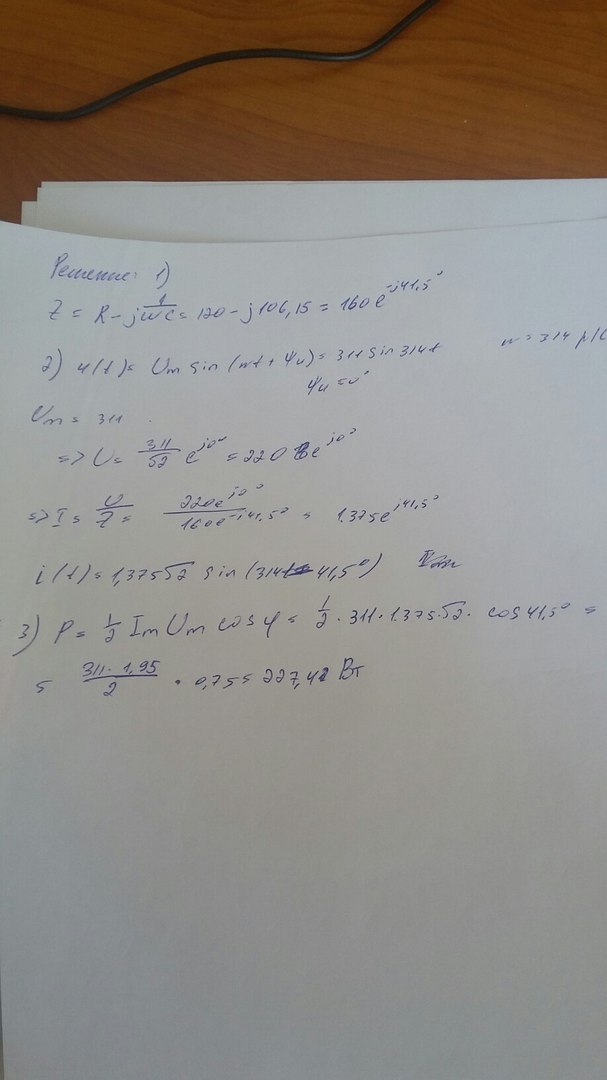 Решение: 1)
Z = R - j 1/ωC = 120 - j106,15 = 160e^-j41,5°
2) u(t) = Um sin(ωt + ψu) = 311 sin 314t
ω = 314 р/с
ψu = 0°
Um = 311
=> U = 311/√2 e^j0° = 220 e^j0°
=> I = U/Z = 220e^j0° / 160e^-j41,5° = 1.375e^j41,5°
i(t) = 1,375√2 sin(314t 41,5°)
3) P = 1/2 Im Um cos φ = 1/2 · 311 · 1.375 · √2 · cos 41,5° =
= 311 · 1,95 / 2 · 0,75 = 227,42 Вт